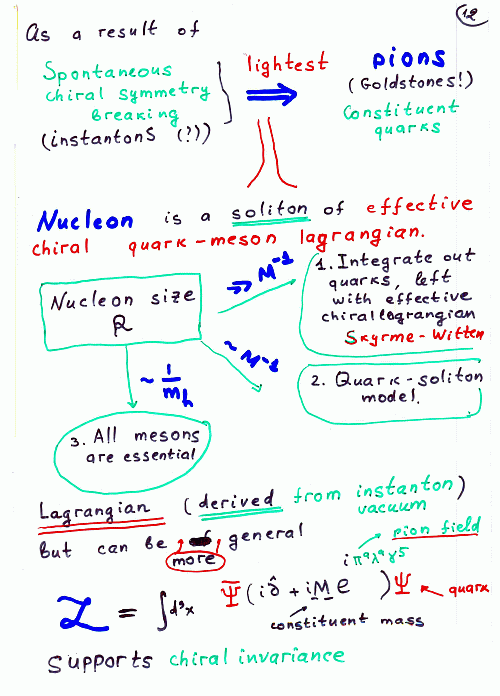 12
As a result of
Spontaneous
chiral symmetry
breaking
(instantons (?))
lightest
⇒
pions
(Goldstones!)
Constituent
quarks
Nucleon is a soliton of effective
chiral quark-meson lagrangian.
Nucleon size
R
≫ M⁻¹
1. Integrate out
quarks, left
with effective
chiral lagrangian
Skyrme-Witten
~ M⁻¹
2. Quark-soliton
model.
~ 1/m_h
3. All mesons
are essential
Lagrangian (derived from instanton)
vacuum
But can be general
more
pion field
iπᵃλᵃγ⁵
ℒ = ∫d³x Ψ̄(i∂̂ + iMe )Ψ quark
constituent mass
Supports chiral invariance